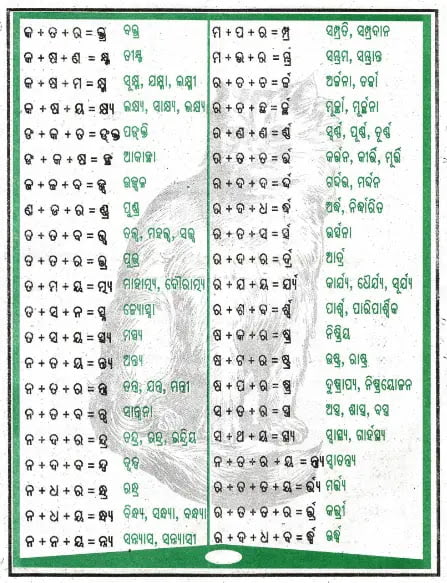 କ + ତ + ର = କ୍ତ୍ର ବକ୍ତ୍ର
କ + ଷ + ଣ = କ୍ଷ୍ଣ ତୀକ୍ଷ୍ଣ
କ + ଷ + ମ = କ୍ଷ୍ମ ସୂକ୍ଷ୍ମ, ଯକ୍ଷ୍ମା, ଲକ୍ଷ୍ମୀ
କ + ଷ + ୟ = କ୍ଷ୍ୟ ଲକ୍ଷ୍ୟ, ସାକ୍ଷ୍ୟ, ଭକ୍ଷ୍ୟ
ଙ + କ + ତ = ଙ୍କ୍ତ ପଙ୍କ୍ତି
ଙ + କ + ଷ = ଙ୍କ୍ଷ ଆକାଙ୍କ୍ଷା
ଜ + ଜ + ବ = ଜ୍ଜ୍ୱ ଉଜ୍ଜ୍ୱଳ
ଣ + ଡ + ର = ଣ୍ଡ୍ର ପୁଣ୍ଡ୍ର
ତ + ତ + ବ = ତ୍ତ୍ୱ ତତ୍ତ୍ୱ, ମହତ୍ତ୍ୱ, ସତ୍ତ୍ୱ
ତ + ତ + ର = ତ୍ତ୍ର ପୁତ୍ତ୍ର
ତ + ମ + ୟ = ତ୍ମ୍ୟ ମାହାତ୍ମ୍ୟ, ଦୌରାତ୍ମ୍ୟ
ତ + ସ + ନ = ତ୍ସ୍ନ ଜ୍ୟୋତ୍ସ୍ନା
ତ + ସ + ୟ = ତ୍ସ୍ୟ ମତ୍ସ୍ୟ
ନ + ତ + ୟ = ନ୍ତ୍ୟ ଅନ୍ତ୍ୟ
ନ + ତ + ର = ନ୍ତ୍ର ତନ୍ତ୍ର, ଯନ୍ତ୍ର, ମନ୍ତ୍ରୀ
ନ + ତ + ବ = ନ୍ତ୍ୱ ସାନ୍ତ୍ୱନା
ନ + ଦ + ର = ନ୍ଦ୍ର ଚନ୍ଦ୍ର, ଇନ୍ଦ୍ର, ଇନ୍ଦ୍ରିୟ
ନ + ଦ + ବ = ନ୍ଦ୍ୱ ଦ୍ୱନ୍ଦ୍ୱ
ନ + ଧ + ର = ନ୍ଧ୍ର ରନ୍ଧ୍ର
ନ + ଧ + ୟ = ନ୍ଧ୍ୟ ବିନ୍ଧ୍ୟ, ସନ୍ଧ୍ୟା, ବନ୍ଧ୍ୟା
ନ + ନ + ୟ = ନ୍ନ୍ୟ ସନ୍ନ୍ୟାସ, ସନ୍ନ୍ୟାସୀ
ମ + ପ + ର = ମ୍ପ୍ର ସମ୍ପ୍ରତି, ସମ୍ପ୍ରଦାନ
ମ + ଭ + ର = ମ୍ଭ୍ର ସମ୍ଭ୍ରମ, ସମ୍ଭ୍ରାନ୍ତ
ର + ଚ + ଚ = ର୍ଚ୍ଚ ଅର୍ଚ୍ଚନା, ଚର୍ଚ୍ଚା
ର + ଚ + ଛ = ର୍ଚ୍ଛ ମୂର୍ଚ୍ଛା, ମୂର୍ଚ୍ଛନା
ର + ଣ + ଣ = ର୍ଣ୍ଣ ସ୍ୱର୍ଣ୍ଣ, ପୂର୍ଣ୍ଣ, ଚୂର୍ଣ୍ଣ
ର + ତ + ତ = ର୍ତ୍ତ କର୍ତ୍ତନ, କୀର୍ତ୍ତି, ମୂର୍ତ୍ତି
ର + ଦ + ଦ = ର୍ଦ୍ଦ ଗର୍ଦ୍ଦଭ, ମର୍ଦ୍ଦନ
ର + ଦ + ଧ = ର୍ଦ୍ଧ ଅର୍ଦ୍ଧ, ନିର୍ଦ୍ଧାରିତ
ର + ତ + ସ = ର୍ତ୍ସ ଭର୍ତ୍ସନା
ର + ଦ + ର = ର୍ଦ୍ର ଆର୍ଦ୍ର
ର + ଯ + ୟ = ର୍ଯ୍ୟ କାର୍ଯ୍ୟ, ଧୈର୍ଯ୍ୟ, ସୂର୍ଯ୍ୟ
ର + ଶ + ବ = ର୍ଶ୍ୱ ପାର୍ଶ୍ୱ, ପାରିପାର୍ଶ୍ୱିକ
ଷ + କ + ର = ଷ୍କ୍ର ନିଷ୍କ୍ରିୟ
ଷ + ଟ + ର = ଷ୍ଟ୍ର ଉଷ୍ଟ୍ର, ରାଷ୍ଟ୍ର
ଷ + ପ + ର = ଷ୍ପ୍ର ଦୁଷ୍ପ୍ରାପ୍ୟ, ନିଷ୍ପ୍ରୟୋଜନ
ସ + ତ + ର = ସ୍ତ୍ର ଅସ୍ତ୍ର, ଶାସ୍ତ୍ର, ବସ୍ତ୍ର
ସ + ଥ + ୟ = ସ୍ଥ୍ୟ ସ୍ୱାସ୍ଥ୍ୟ, ଗାର୍ହସ୍ଥ୍ୟ
ନ + ତ + ର + ୟ = ନ୍ତ୍ର୍ୟ ସ୍ୱାତନ୍ତ୍ର୍ୟ
ର + ତ + ତ + ୟ = ର୍ତ୍ତ୍ୟ ମର୍ତ୍ତ୍ୟ
ର + ତ + ତ + ର = ର୍ତ୍ତ୍ର କର୍ତ୍ତ୍ରୀ
ର + ଦ + ଧ + ବ = ର୍ଦ୍ଧ୍ୱ ଊର୍ଦ୍ଧ୍ୱ